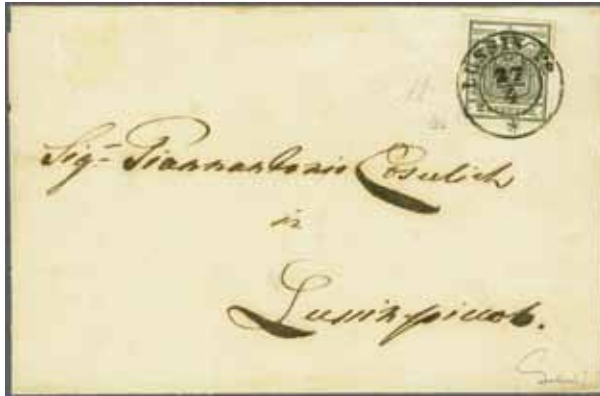 LUSSIN Po
27
4
Sigr Giannantonio Cosulich
in
Lussinpiccolo.